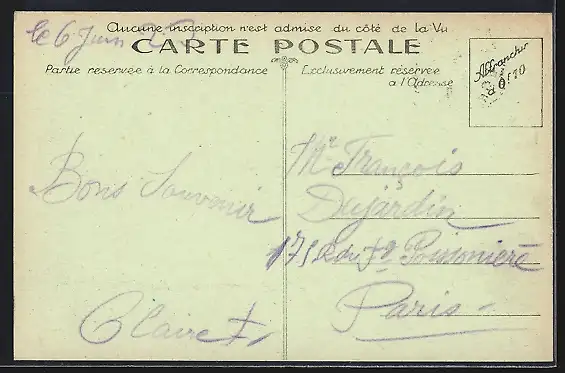 le 6 Juin
Aucune inscription n'est admise du côté de la Vu
CARTE POSTALE
Partie reservee à la Correspondance
Exclusivement réservée
a l'Adresse
Affranchir
à 0f10
Bons Souvenir
Claire
Mr François
Dujardin
175 R du Fg Poissonière
Paris